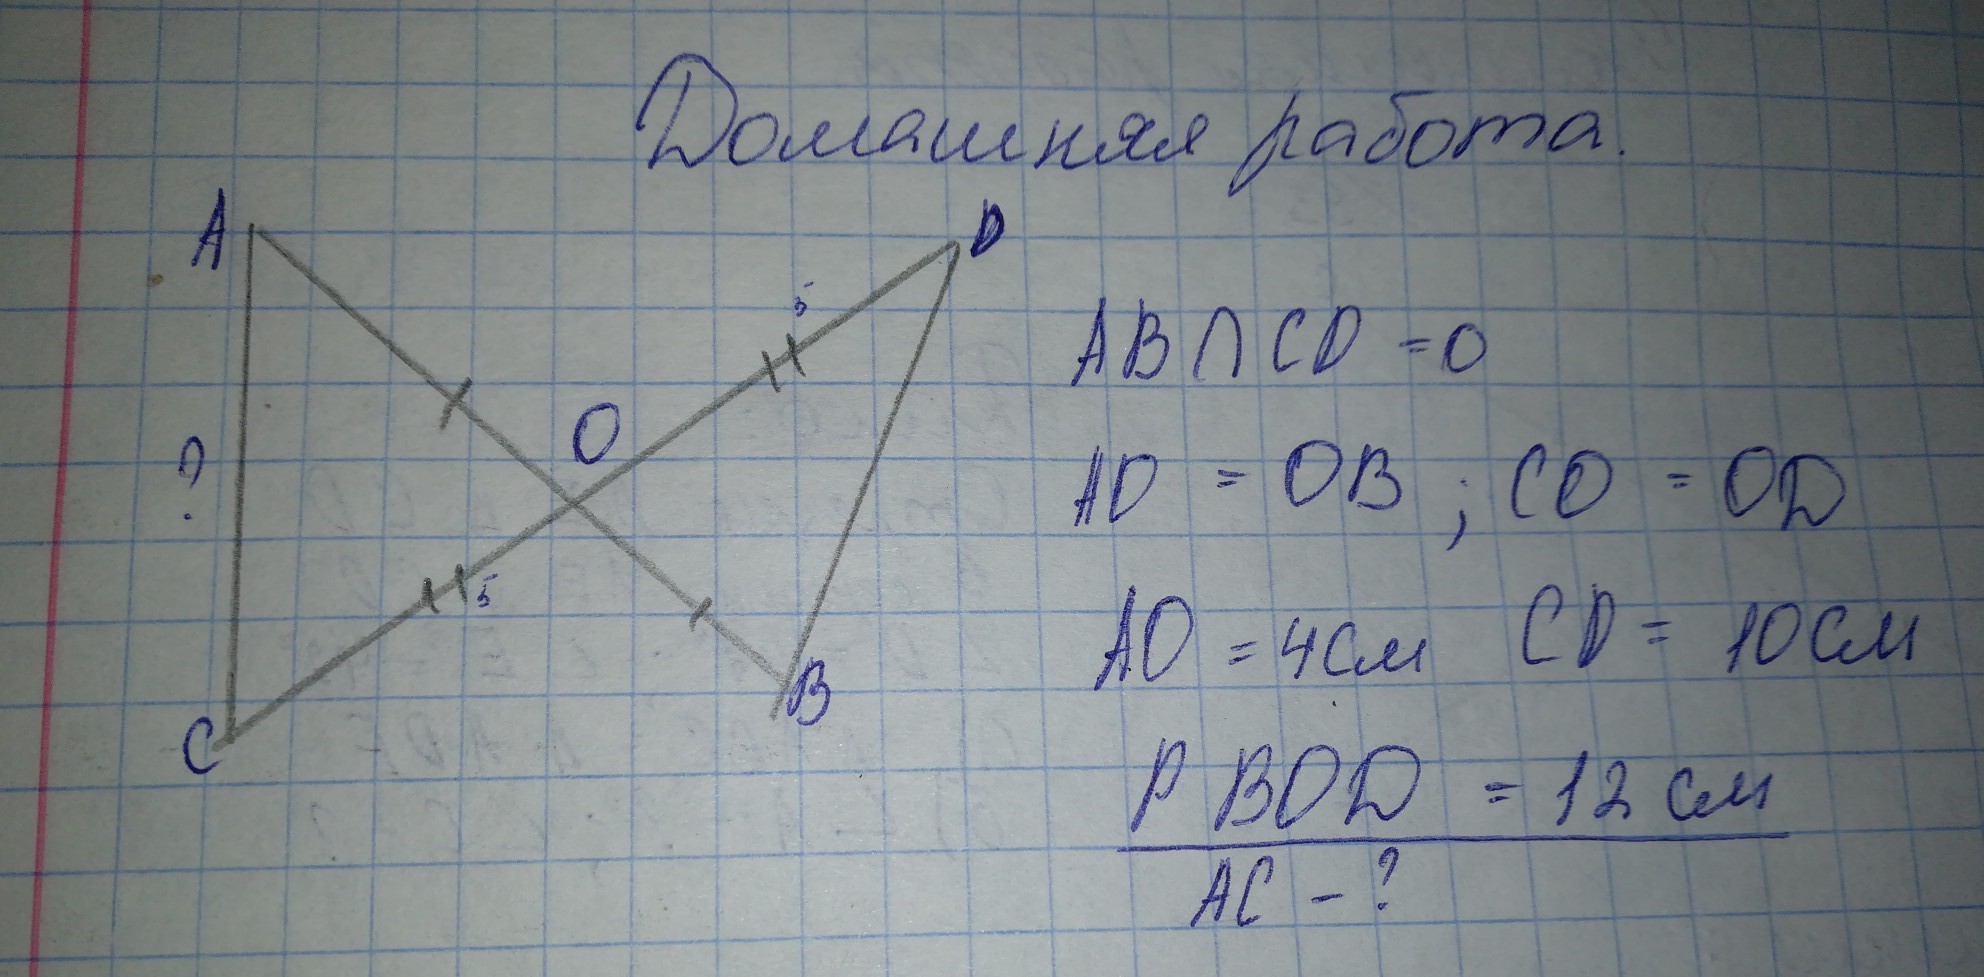 Домашняя работа.
A
D
5
O
?
5
C
B
AB ∩ CD = O
AO = OB ; CO = OD
AO = 4см CD = 10см
P BOD = 12 см
AC - ?